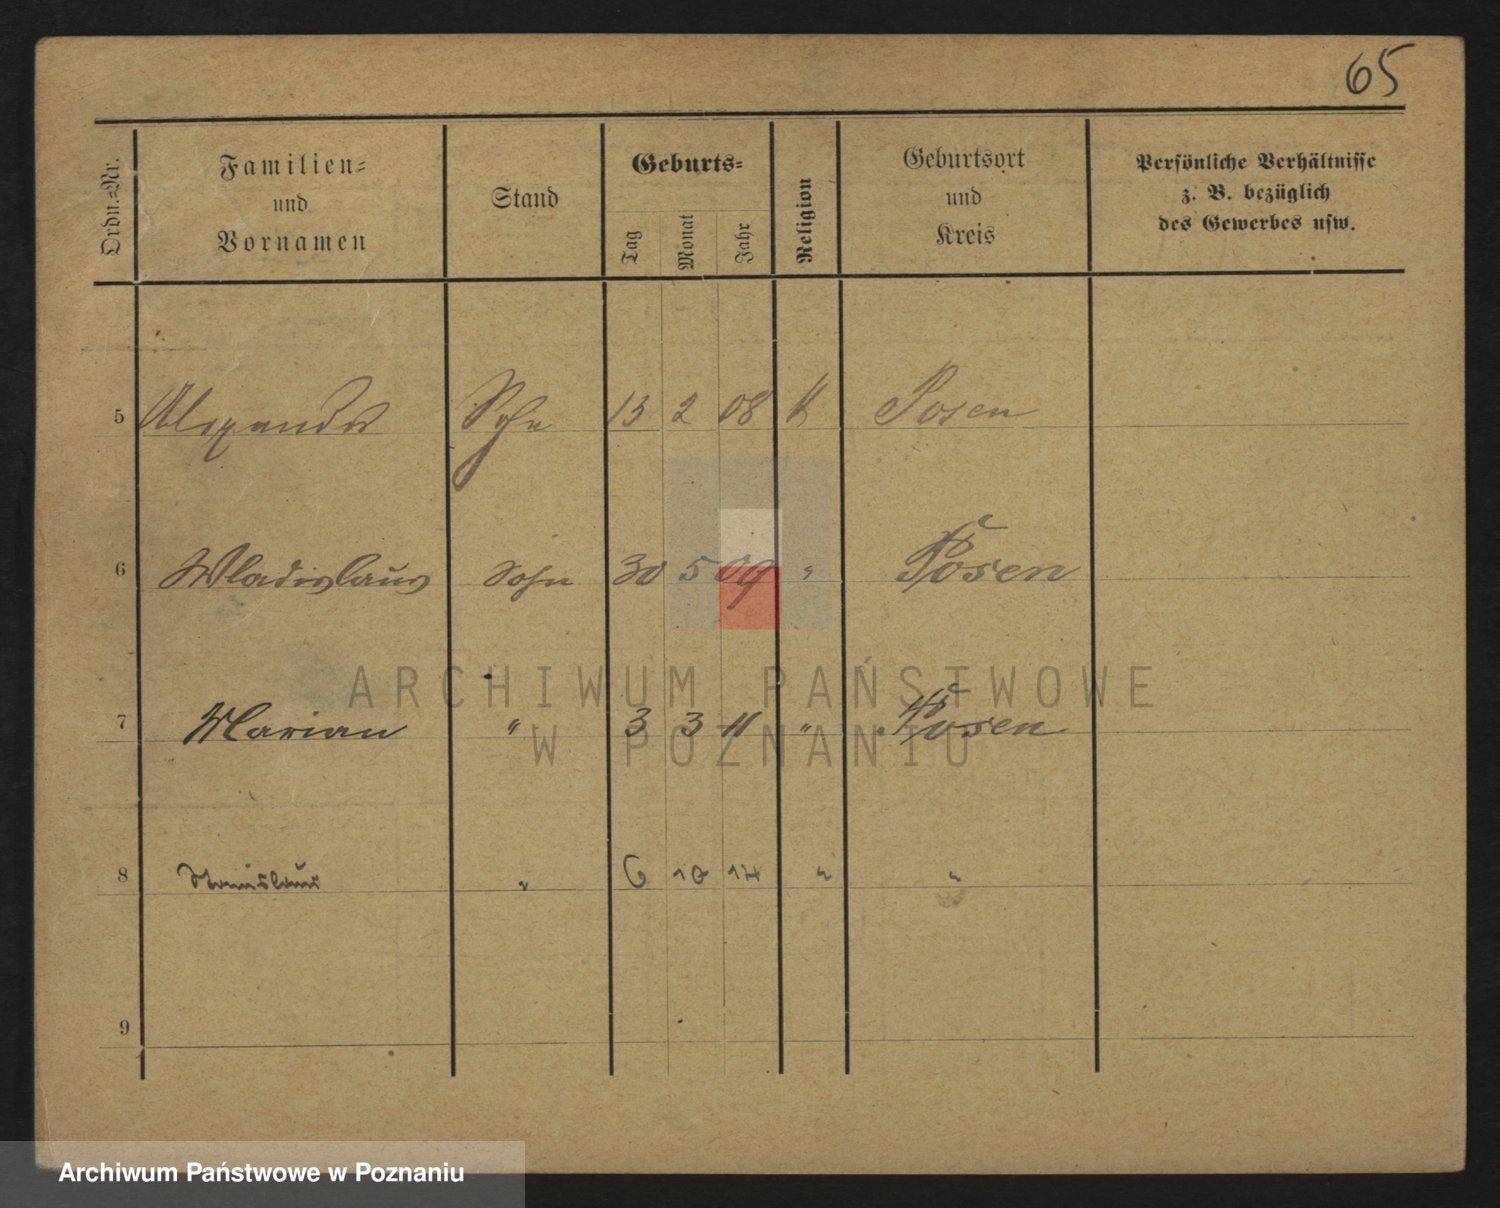 65
Ordn.=Nr.
Familien=
und
Vornamen
Stand
Geburts=
Tag
Monat
Jahr
Religion
Geburtsort
und
Kreis
Persönliche Verhältnisse
z. B. bezüglich
des Gewerbes usw.
5 Alexander Sohn 13 2 08 K Posen
6 Wladislaus Sohn 30 5 09 " Posen
ARCHIWUM PAŃSTWOWE
W POZNANIU
7 Marian " 3 3 11 " Posen
8 Stanislaus " 6 10 14 " "
9
Archiwum Państwowe w Poznaniu